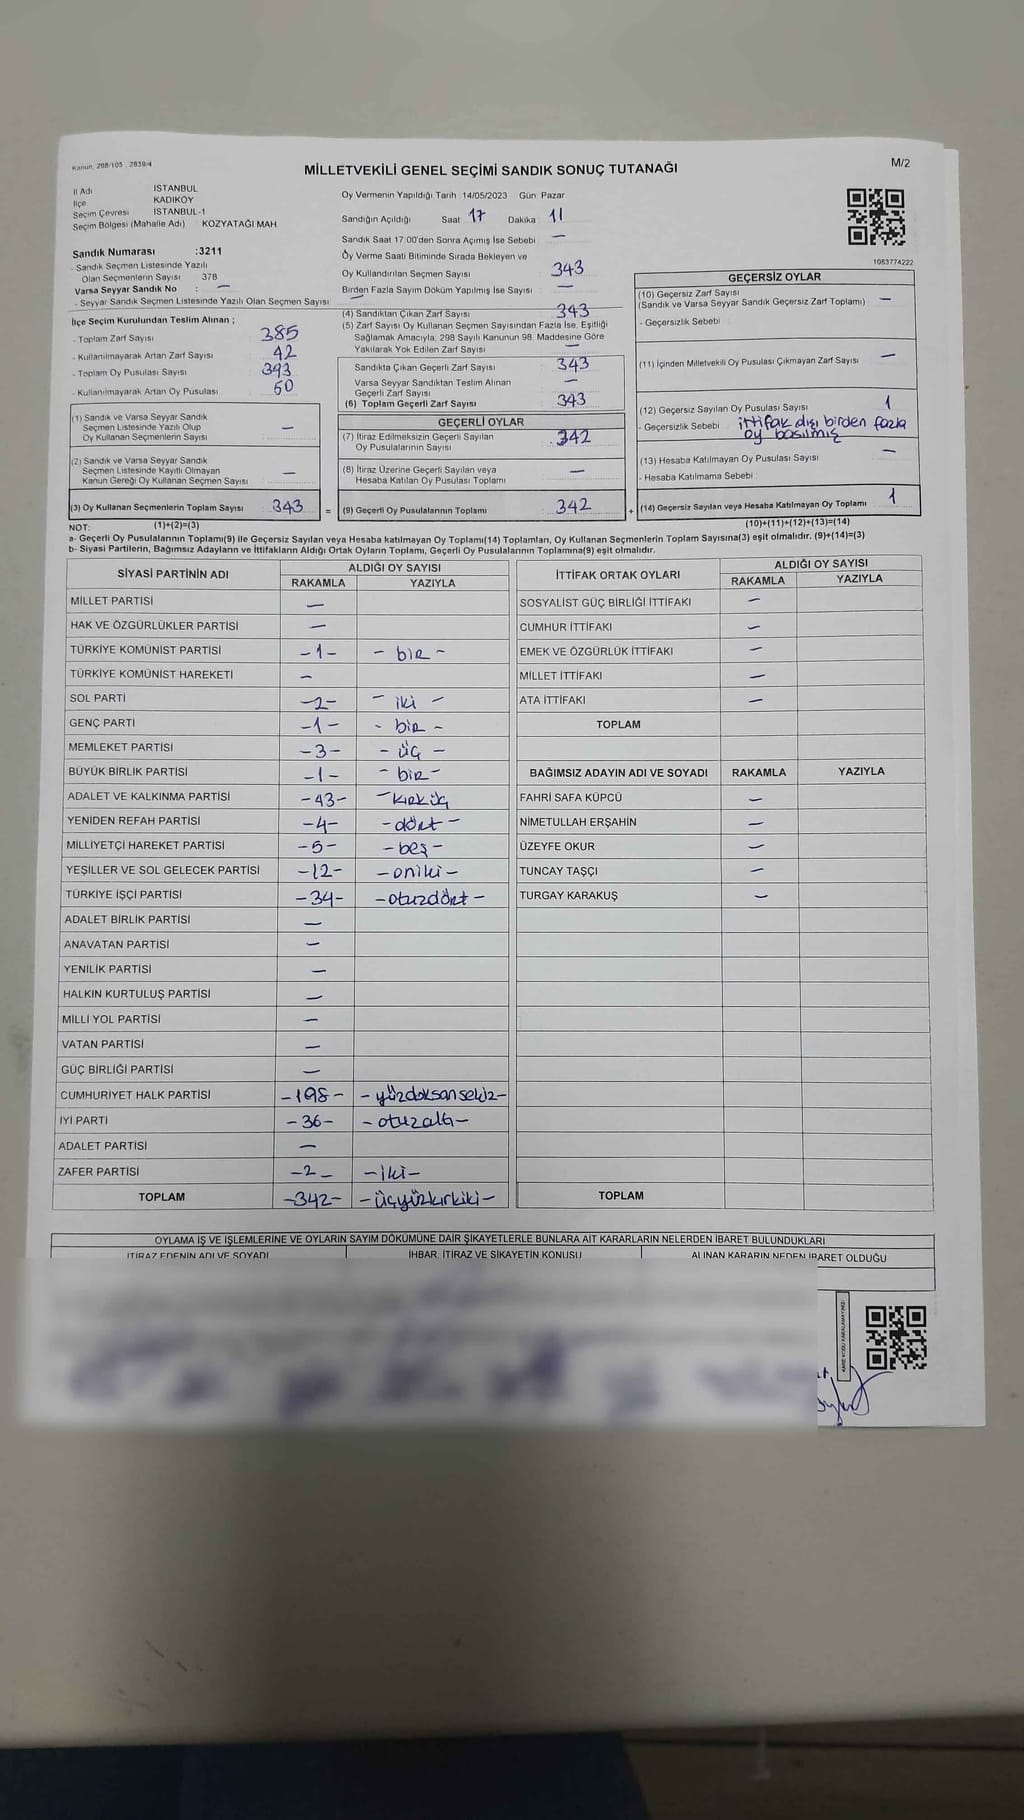 Kanun: 298/105 , 2839/4
MİLLETVEKİLİ GENEL SEÇİMİ SANDIK SONUÇ TUTANAĞI
M/2
İl Adı İSTANBUL
İlçe KADIKÖY
Seçim Çevresi İSTANBUL-1
Seçim Bölgesi (Mahalle Adı) KOZYATAĞI MAH
Sandık Numarası :3211
- Sandık Seçmen Listesinde Yazılı
Olan Seçmenlerin Sayısı 378
Varsa Seyyar Sandık No : —
- Seyyar Sandık Seçmen Listesinde Yazılı Olan Seçmen Sayısı —
Oy Vermenin Yapıldığı Tarih : 14/05/2023 Gün: Pazar
Sandığın Açıldığı Saat 17 Dakika 11
Sandık Saat 17:00'den Sonra Açımış İse Sebebi —
Oy Verme Saati Bitiminde Sırada Bekleyen ve
Oy Kullandırılan Seçmen Sayısı 343
Birden Fazla Sayım Döküm Yapılmış İse Sayısı —
1083774222
İlçe Seçim Kurulundan Teslim Alınan ;
- Toplam Zarf Sayısı 385
- Kullanılmayarak Artan Zarf Sayısı 42
- Toplam Oy Pusulası Sayısı 393
- Kullanılmayarak Artan Oy Pusulası 50
(1) Sandık ve Varsa Seyyar Sandık
Seçmen Listesinde Yazılı Olup
Oy Kullanan Seçmenlerin Sayısı —
(2) Sandık ve Varsa Seyyar Sandık
Seçmen Listesinde Kayıtlı Olmayan
Kanun Gereği Oy Kullanan Seçmen Sayısı —
(3) Oy Kullanan Seçmenlerin Toplam Sayısı 343
(4) Sandıktan Çıkan Zarf Sayısı 343
(5) Zarf Sayısı Oy Kullanan Seçmen Sayısından Fazla İse, Eşitliği
Sağlamak Amacıyla; 298 Sayılı Kanunun 98. Maddesine Göre
Yakılarak Yok Edilen Zarf Sayısı —
Sandıkta Çıkan Geçerli Zarf Sayısı 343
Varsa Seyyar Sandıktan Teslim Alınan
Geçerli Zarf Sayısı —
(6) Toplam Geçerli Zarf Sayısı 343
GEÇERLİ OYLAR
(7) İtiraz Edilmeksizin Geçerli Sayılan
Oy Pusulalarının Sayısı 342
(8) İtiraz Üzerine Geçerli Sayılan veya
Hesaba Katılan Oy Pusulası Toplamı —
= (9) Geçerli Oy Pusulalarının Toplamı 342 +
GEÇERSİZ OYLAR
(10) Geçersiz Zarf Sayısı —
(Sandık ve Varsa Seyyar Sandık Geçersiz Zarf Toplamı)
- Geçersizlik Sebebi
(11) İçinden Milletvekili Oy Pusulası Çıkmayan Zarf Sayısı —
(12) Geçersiz Sayılan Oy Pusulası Sayısı 1
- Geçersizlik Sebebi ittifak dışı birden fazla
oy basılmış
(13) Hesaba Katılmayan Oy Pusulası Sayısı —
- Hesaba Katılmama Sebebi
(14) Geçersiz Sayılan veya Hesaba Katılmayan Oy Toplamı 1
NOT: (1)+(2)=(3) (10)+(11)+(12)+(13)=(14)
a- Geçerli Oy Pusulalarının Toplamı(9) ile Geçersiz Sayılan veya Hesaba katılmayan Oy Toplamı(14) Toplamları, Oy Kullanan Seçmenlerin Toplam Sayısına(3) eşit olmalıdır. (9)+(14)=(3)
b- Siyasi Partilerin, Bağımsız Adayların ve İttifakların Aldığı Ortak Oyların Toplamı, Geçerli Oy Pusulalarının Toplamına(9) eşit olmalıdır.
SİYASİ PARTİNİN ADI ALDIĞI OY SAYISI
RAKAMLA YAZIYLA
MİLLET PARTİSİ —
HAK VE ÖZGÜRLÜKLER PARTİSİ —
TÜRKİYE KOMÜNİST PARTİSİ -1- - bir -
TÜRKİYE KOMÜNİST HAREKETİ —
SOL PARTİ -2- - iki -
GENÇ PARTİ -1- - bir -
MEMLEKET PARTİSİ -3- - üç -
BÜYÜK BİRLİK PARTİSİ -1- - bir -
ADALET VE KALKINMA PARTİSİ -43- - kırküç
YENİDEN REFAH PARTİSİ -4- - dört -
MİLLİYETÇİ HAREKET PARTİSİ -5- - beş -
YEŞİLLER VE SOL GELECEK PARTİSİ -12- - oniki -
TÜRKİYE İŞÇİ PARTİSİ -34- - otuzdört -
ADALET BİRLİK PARTİSİ —
ANAVATAN PARTİSİ —
YENİLİK PARTİSİ —
HALKIN KURTULUŞ PARTİSİ —
MİLLİ YOL PARTİSİ —
VATAN PARTİSİ —
GÜÇ BİRLİĞİ PARTİSİ —
CUMHURİYET HALK PARTİSİ -198- - yüzdoksansekiz -
İYİ PARTİ -36- - otuzaltı -
ADALET PARTİSİ —
ZAFER PARTİSİ -2- - iki -
TOPLAM -342- - üçyüzkırkiki -
İTTİFAK ORTAK OYLARI ALDIĞI OY SAYISI
RAKAMLA YAZIYLA
SOSYALİST GÜÇ BİRLİĞİ İTTİFAKI —
CUMHUR İTTİFAKI —
EMEK VE ÖZGÜRLÜK İTTİFAKI —
MİLLET İTTİFAKI —
ATA İTTİFAKI —
TOPLAM
BAĞIMSIZ ADAYIN ADI VE SOYADI RAKAMLA YAZIYLA
FAHRİ SAFA KÜPCÜ —
NİMETULLAH ERŞAHİN —
ÜZEYFE OKUR —
TUNCAY TAŞÇI —
TURGAY KARAKUŞ —
TOPLAM
OYLAMA İŞ VE İŞLEMLERİNE VE OYLARIN SAYIM DÖKÜMÜNE DAİR ŞİKAYETLERLE BUNLARA AİT KARARLARIN NELERDEN İBARET BULUNDUKLARI
İTİRAZ EDENİN ADI VE SOYADI İHBAR, İTİRAZ VE ŞİKAYETİN KONUSU ALINAN KARARIN NEDEN İBARET OLDUĞU